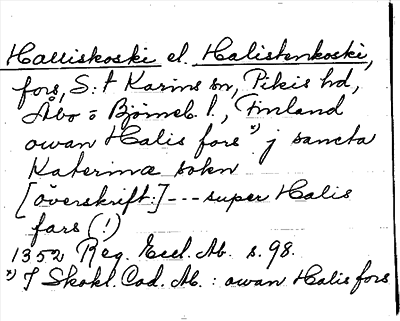 Halliskoski el. Halistenkoski,
fors, S:t Karins sn, Pikis hd,
Åbo o Björneb. l., Finland
owan Halis fors *) j sancta
Katerinæ sokn
[överskrift:] --- super Halis
fars (!)
1352 Reg. Eccl. Ab. s. 98.
*) I Skokl. Cod. Ab. : owan Halis fors